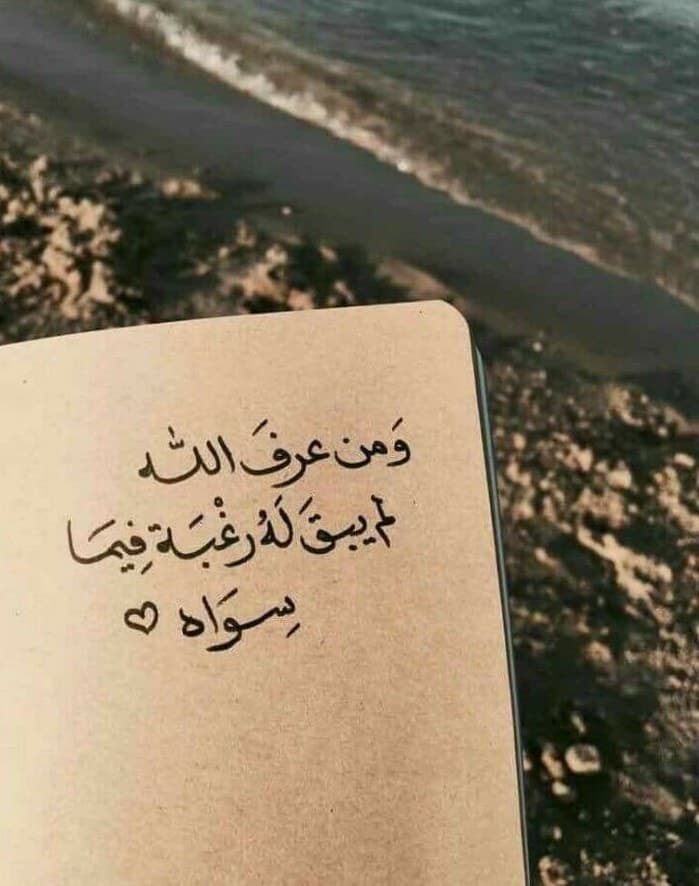 وَمن عرفَ اللّٰه
لم يبقَ لَهُ رغْبَة فِيمَا
سِوَاه ♡